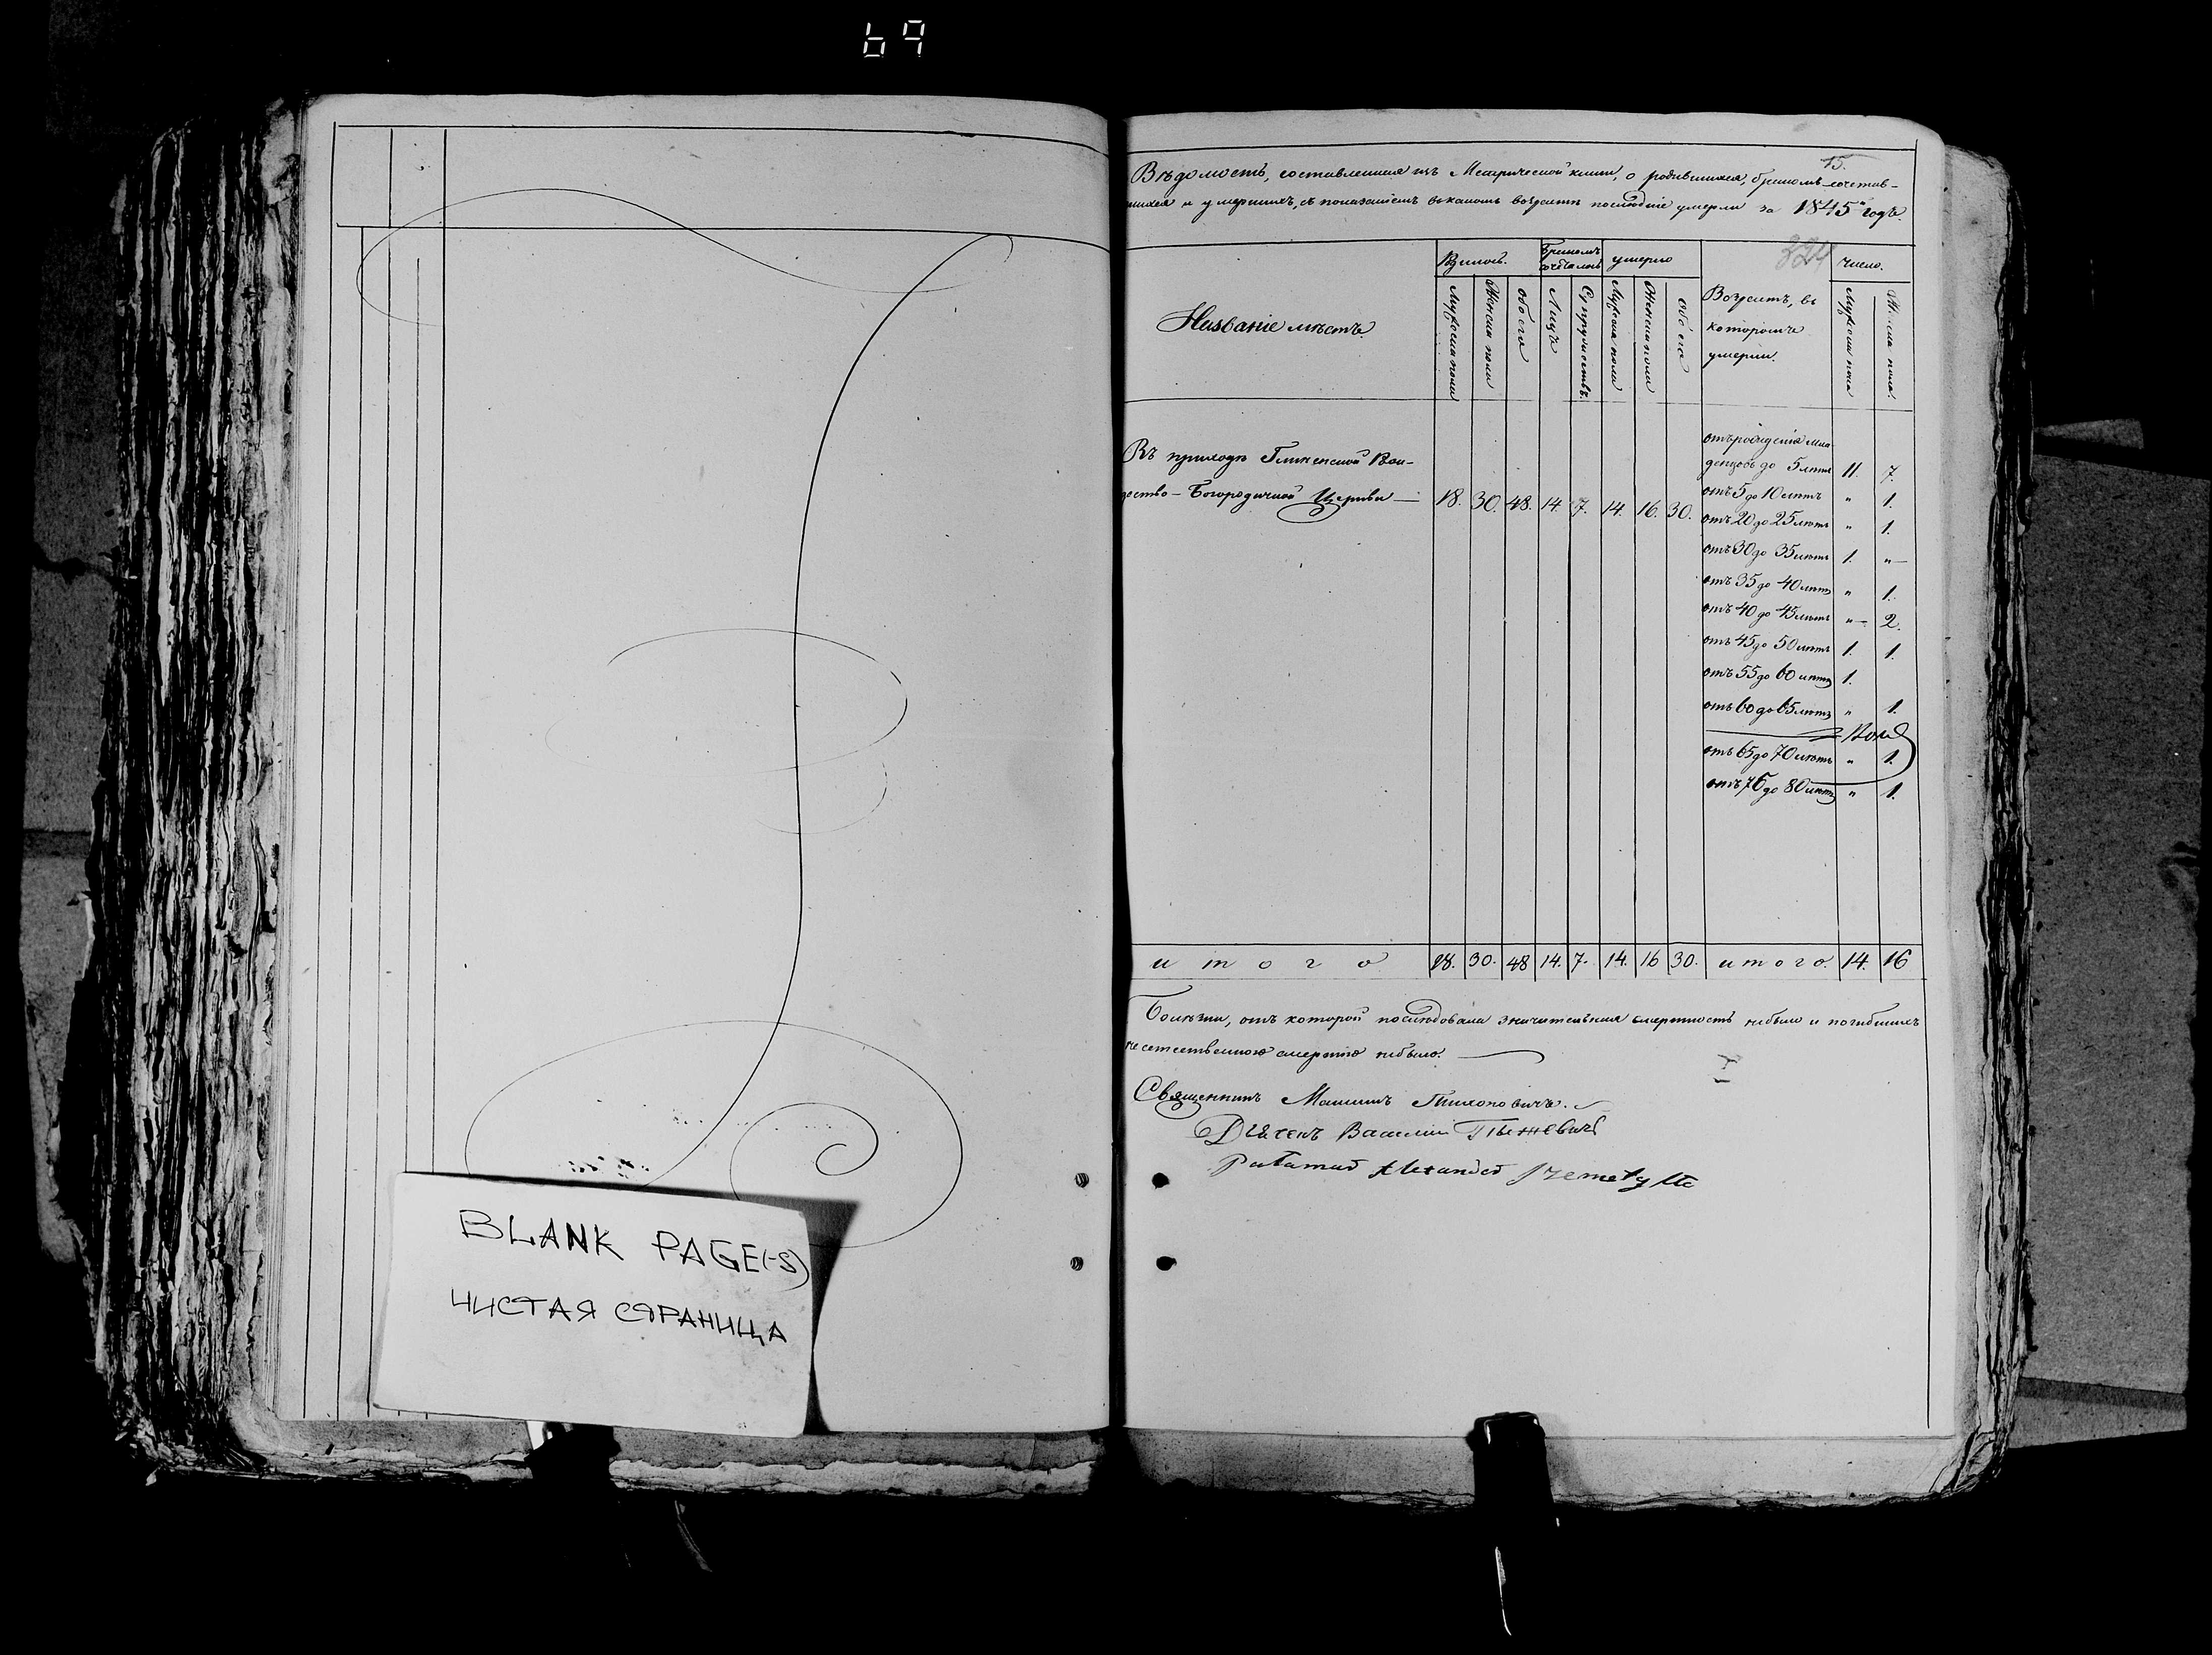 69
15.
Вѣдомость, составленная изъ Метрической книги, о родившихся, бракомъ сочетав-
шихся и умершихъ, съ показаніемъ въ какомъ возрастѣ послѣдніе умерли за 1845й годъ.
324
Бракомъ
умерло
число.
Названіе мѣстъ.
Мужеска пола
Женска пола
обоего
Лицъ
Супружествъ.
Мужеска пола
Женска пола
обоего
Возрастъ, въ
которомъ
умерли.
Мужеска пола
Женска пола.
Въ приходѣ
Богородичной Церкви — 18. 30. 48. 14. 7. 14. 16. 30.
отъ рожденія мла-
денцовъ до 5 лѣтъ 11. 7.
отъ 5 до 10 лѣтъ " 1.
отъ 20 до 25 лѣтъ " 1.
отъ 30 до 35 лѣтъ 1. "—
отъ 35 до 40 лѣтъ " 1.
отъ 40 до 45 лѣтъ "— 2.
отъ 45 до 50 лѣтъ 1. 1.
отъ 55 до 60 лѣтъ 1.
отъ 60 до 65 лѣтъ " 1.
отъ 65 до 70 лѣтъ " 1.
отъ 76 до 80 лѣтъ " 1.
итого 18. 30. 48 14. 7. 14. 16 30. итого. 14. 16
Болѣзни, отъ которой послѣдовала значительная смертность небыло и погибшихъ
неестественною смертію небыло.
Священникъ
Дьячекъ Василій
Palamar Alexander
BLANK PAGE(-S)
ЧИСТАЯ СТРАНИЦА